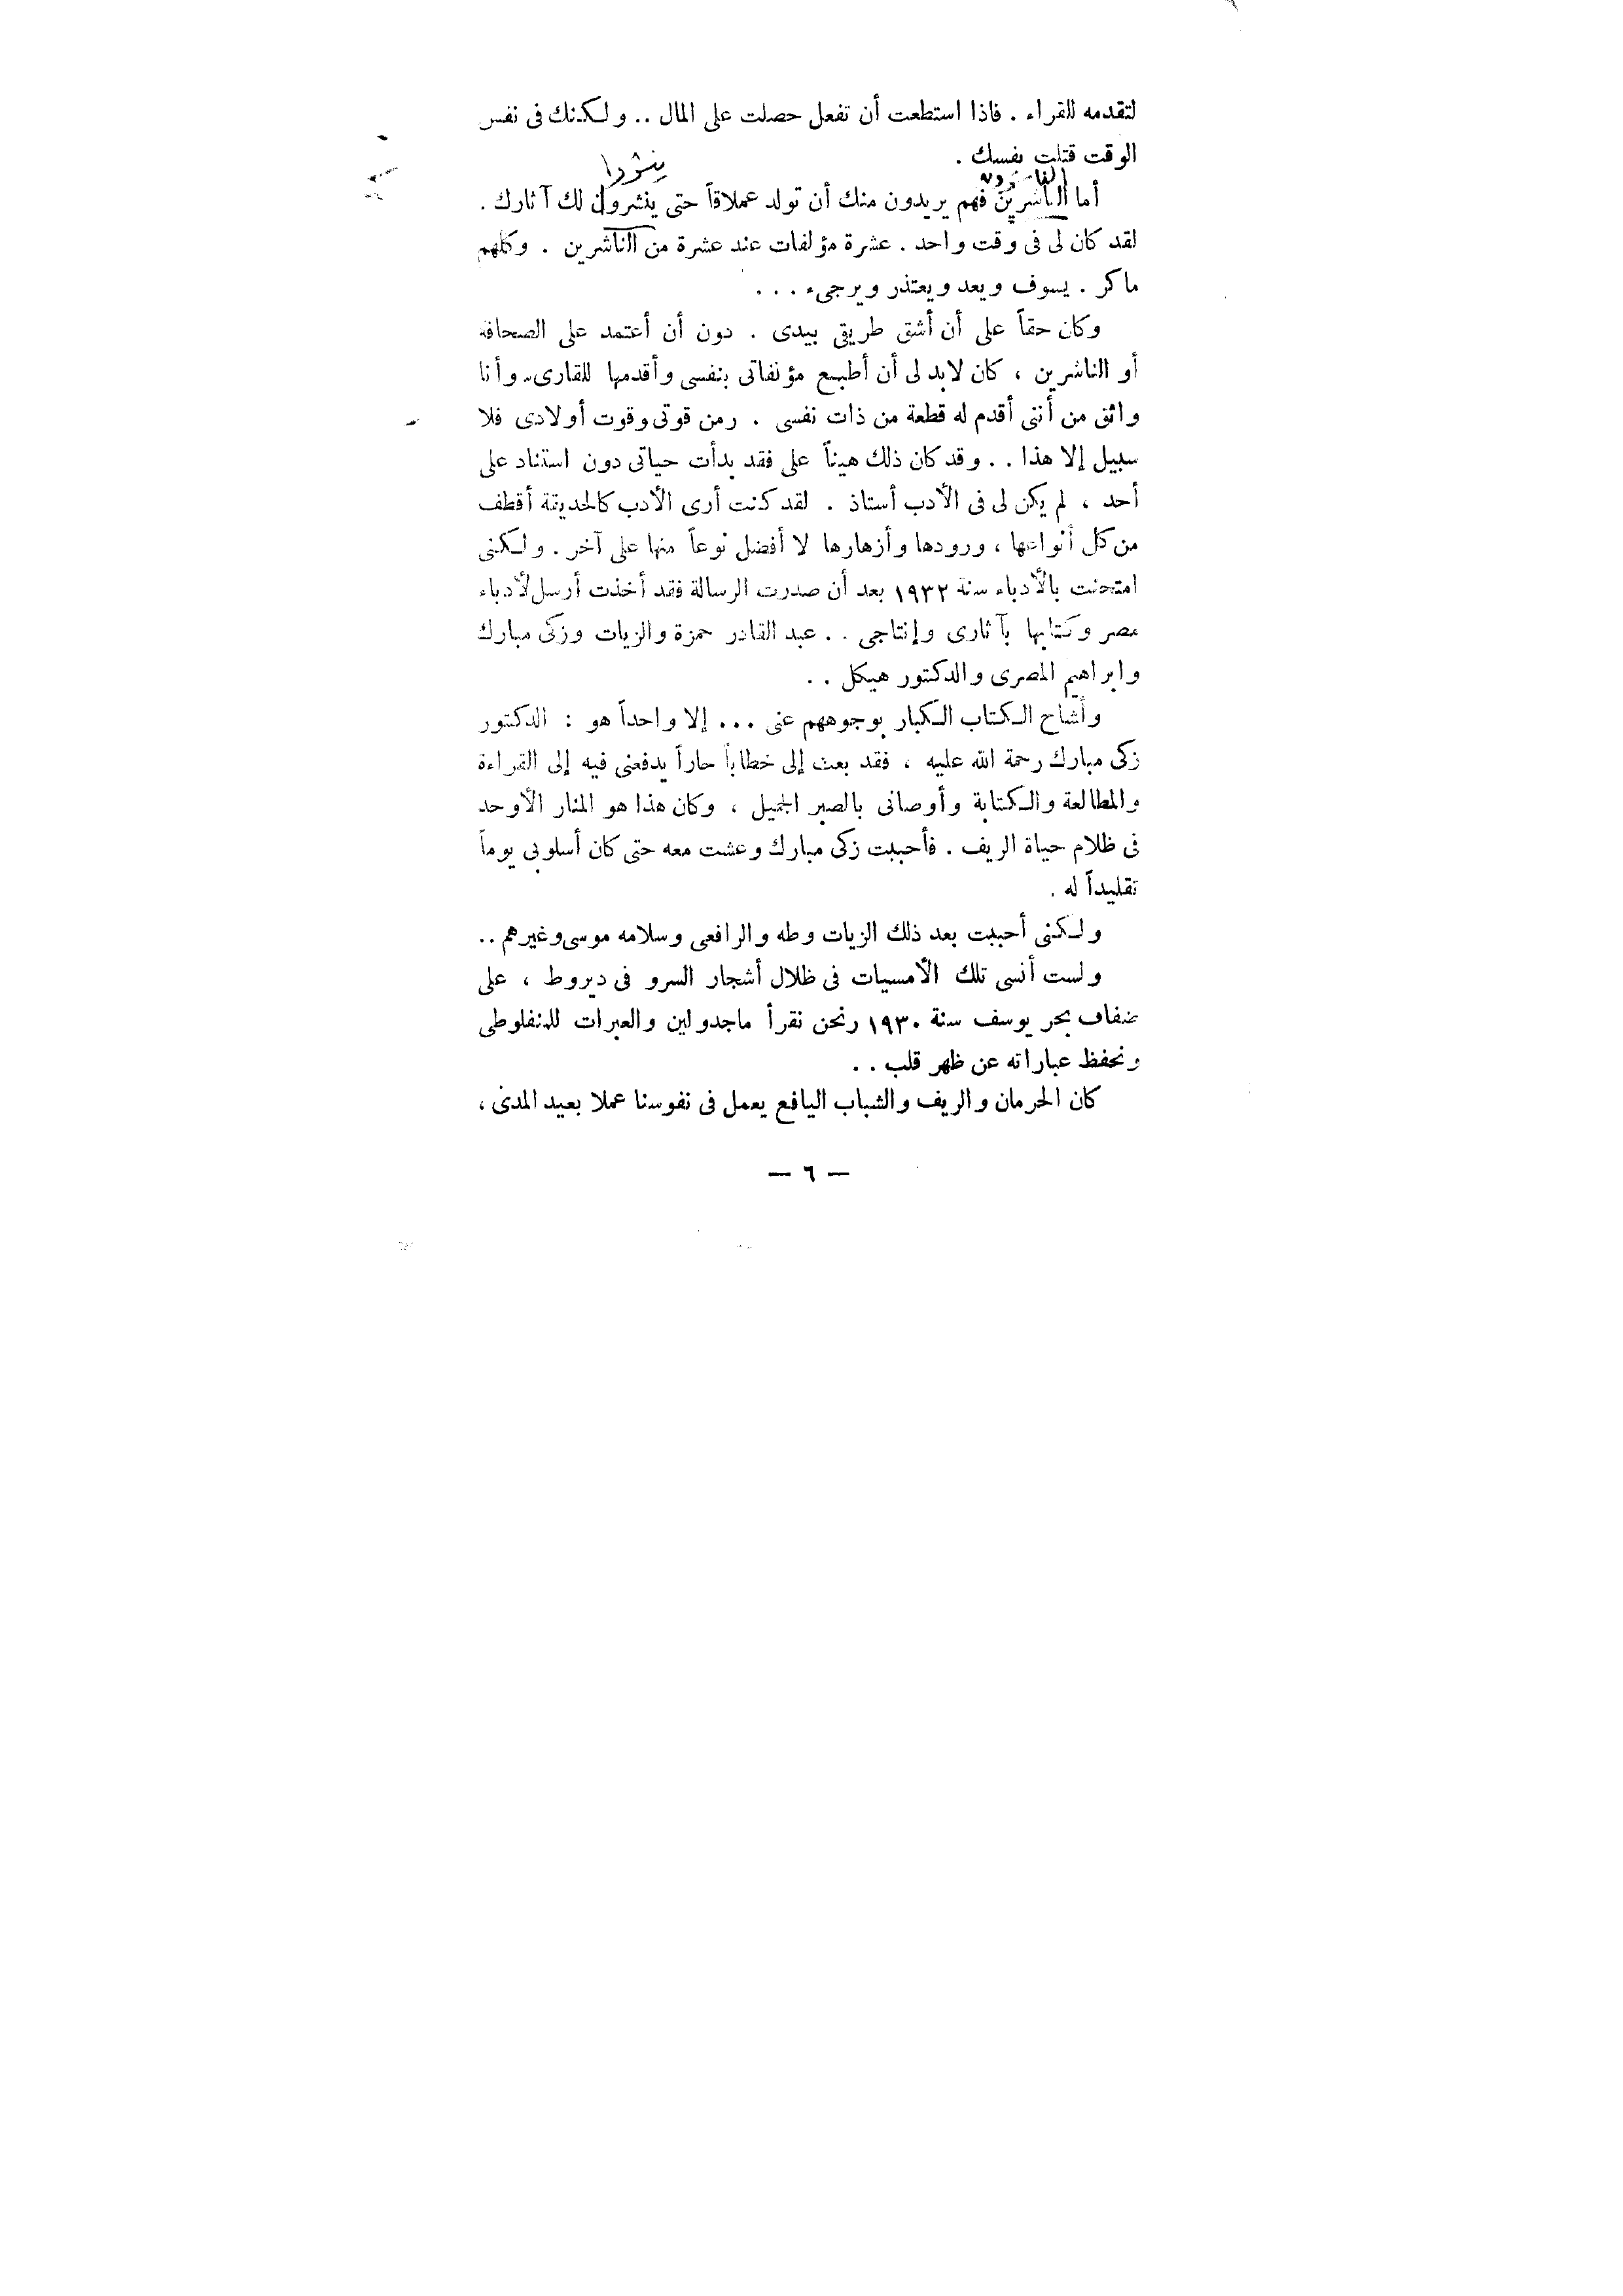 لتقدمه للقراء . فاذا استطعت أن تفعل حصلت على المال .. ولكنك فى نفس
الوقت قتلت نفسك .
ينشروا
الناشرون
أما الناشرين فهم يريدون منك أن تولد عملاقاً حتى ينشرون لك آثارك .
لقد كان لى فى وقت واحد . عشرة مؤلفات عند عشرة من الناشرين . وكلهم
ماكر . يسوف ويعد ويعتذر ويرجىء ...
وكان حقاً على أن أشق طريقى بيدى . دون أن أعتمد على الصحافة
أو الناشرين ، كان لابد لى أن أطبع مؤلفاتى بنفسى وأقدمها للقارىء وأنا
واثق من أننى أقدم له قطعة من ذات نفسى . ومن قوتى وقوت أولادى فلا
سبيل إلا هذا .. وقد كان ذلك هيناً على فقد بدأت حياتى دون استناد على
أحد ، لم يكن لى فى الأدب أستاذ . لقد كنت أرى الأدب كالحديقة أقطف
من كل أنواعها ، ورودها وأزهارها لا أفضل نوعاً منها على آخر . ولكنى
امتحنت بالأدباء سنة ١٩٣٢ بعد أن صدرت الرسالة فقد أخذت أرسل لأدباء
مصر وكتابها بآثارى وإنتاجى .. عبد القادر حمزة والزيات وزكى مبارك
وابراهيم المصرى والدكتور هيكل ..
وأشاح الكتاب الكبار بوجوههم عنى ... إلا واحداً هو : الدكتور
زكى مبارك رحمة الله عليه ، فقد بعث إلى خطاباً حاراً يدفعنى فيه إلى القراءة
والمطالعة والكتابة وأوصانى بالصبر الجميل ، وكان هذا هو المنار الأوحد
فى ظلام حياة الريف . فأحببت زكى مبارك وعشت معه حتى كان أسلوبى يوماً
تقليداً له .
ولكنى أحببت بعد ذلك الزيات وطه والرافعى وسلامه موسى وغيرهم ..
ولست أنسى تلك الأمسيات فى ظلال أشجار السرو فى ديروط ، على
ضفاف بحر يوسف سنة ١٩٣٠ ونحن نقرأ ماجدولين والعبرات للمنفلوطى
ونحفظ عباراته عن ظهر قلب ..
كان الحرمان والريف والشباب اليافع يعمل فى نفوسنا عملا بعيد المدى ،
— ٦ —